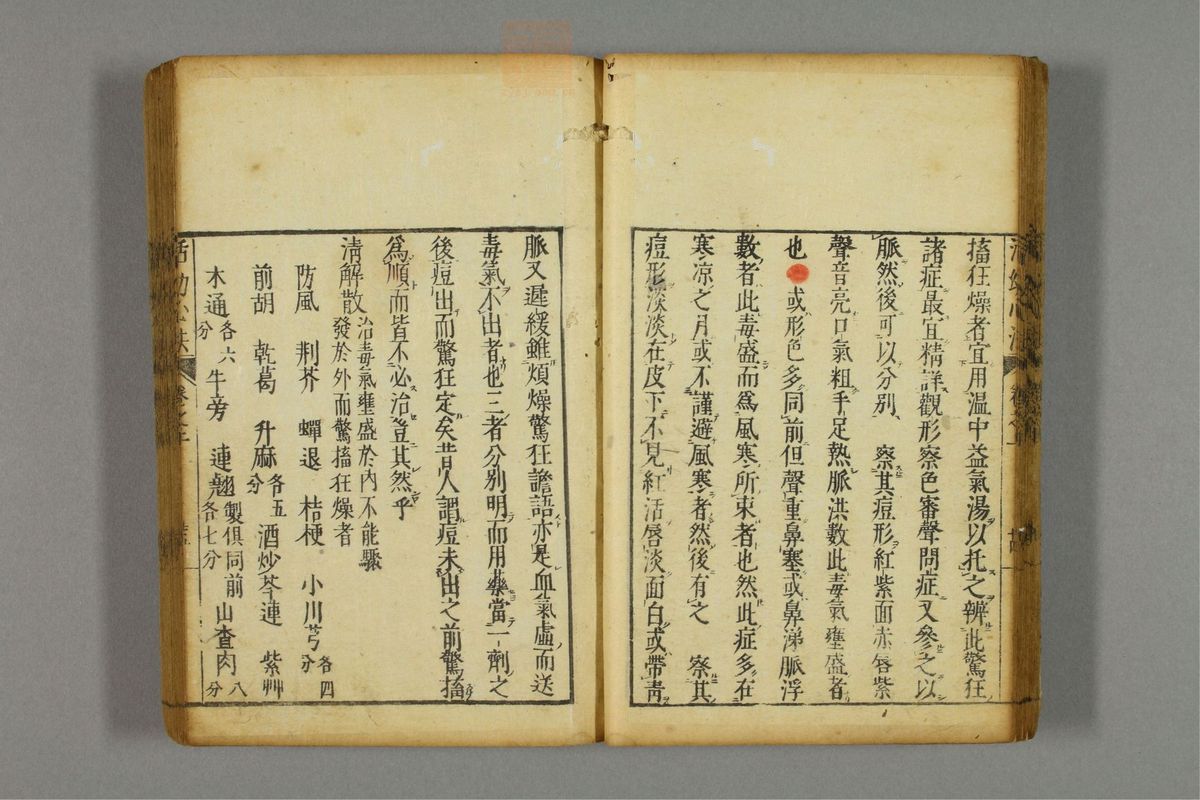 搐狂燥者宜用溫中益氣湯以托之辨此驚狂
諸症最宜精詳觀形察色審聲問症又參之以
脈然後可以分別 察其痘形紅紫面赤唇紫
聲音亮口氣粗手足熱脈洪數此毒氣壅盛者
也 或形色多同前但聲重鼻塞或鼻涕脈浮
數者此毒盛而爲風寒所束者也然此症多在
寒凉之月或不謹避風寒者然後有之 察其
痘形淡淡在皮下不見紅活唇淡面白或帶靑
脈又遲緩雖煩燥驚狂譫語亦是血氣虛而送
毒氣不出者也三者分別明而用藥當一劑之
後痘出而驚狂定矣昔人謂痘未出之前驚搐
爲順而皆不必治豈其然乎
淸解散 治毒氣壅盛於內不能驟
發於外而驚搐狂燥者
防風 荆芥 蟬退 桔梗 小川芎 各四分
前胡 乾葛 升麻 各五分 酒炒芩連 紫艸
木通 各六分 牛旁 連翹 製俱同前各七分 山查肉 八分